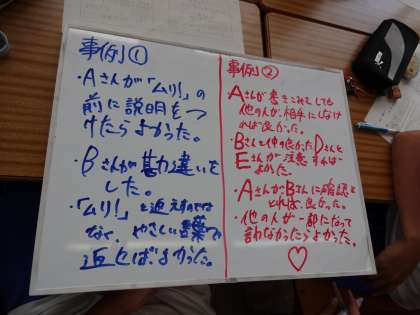 事例①
・Aさんが「ムリ!」の
前に説明をつ
けたらよかった。
・Bさんが勘違いを
した。
・「ムリ!」と返えすのでは
なく、やさしい言葉で
返せばよかった。
事例②
Aさんが書きこみをしても
他の人が、相手にしなけ
れば良かった。
・Bさんと仲の良かったDさんと
Eさんが注意すれば
よかった。
・Aさんが、Bさんに確認を
とれば、良かった。
・他の人が一部になって
言わなかったらよかった。